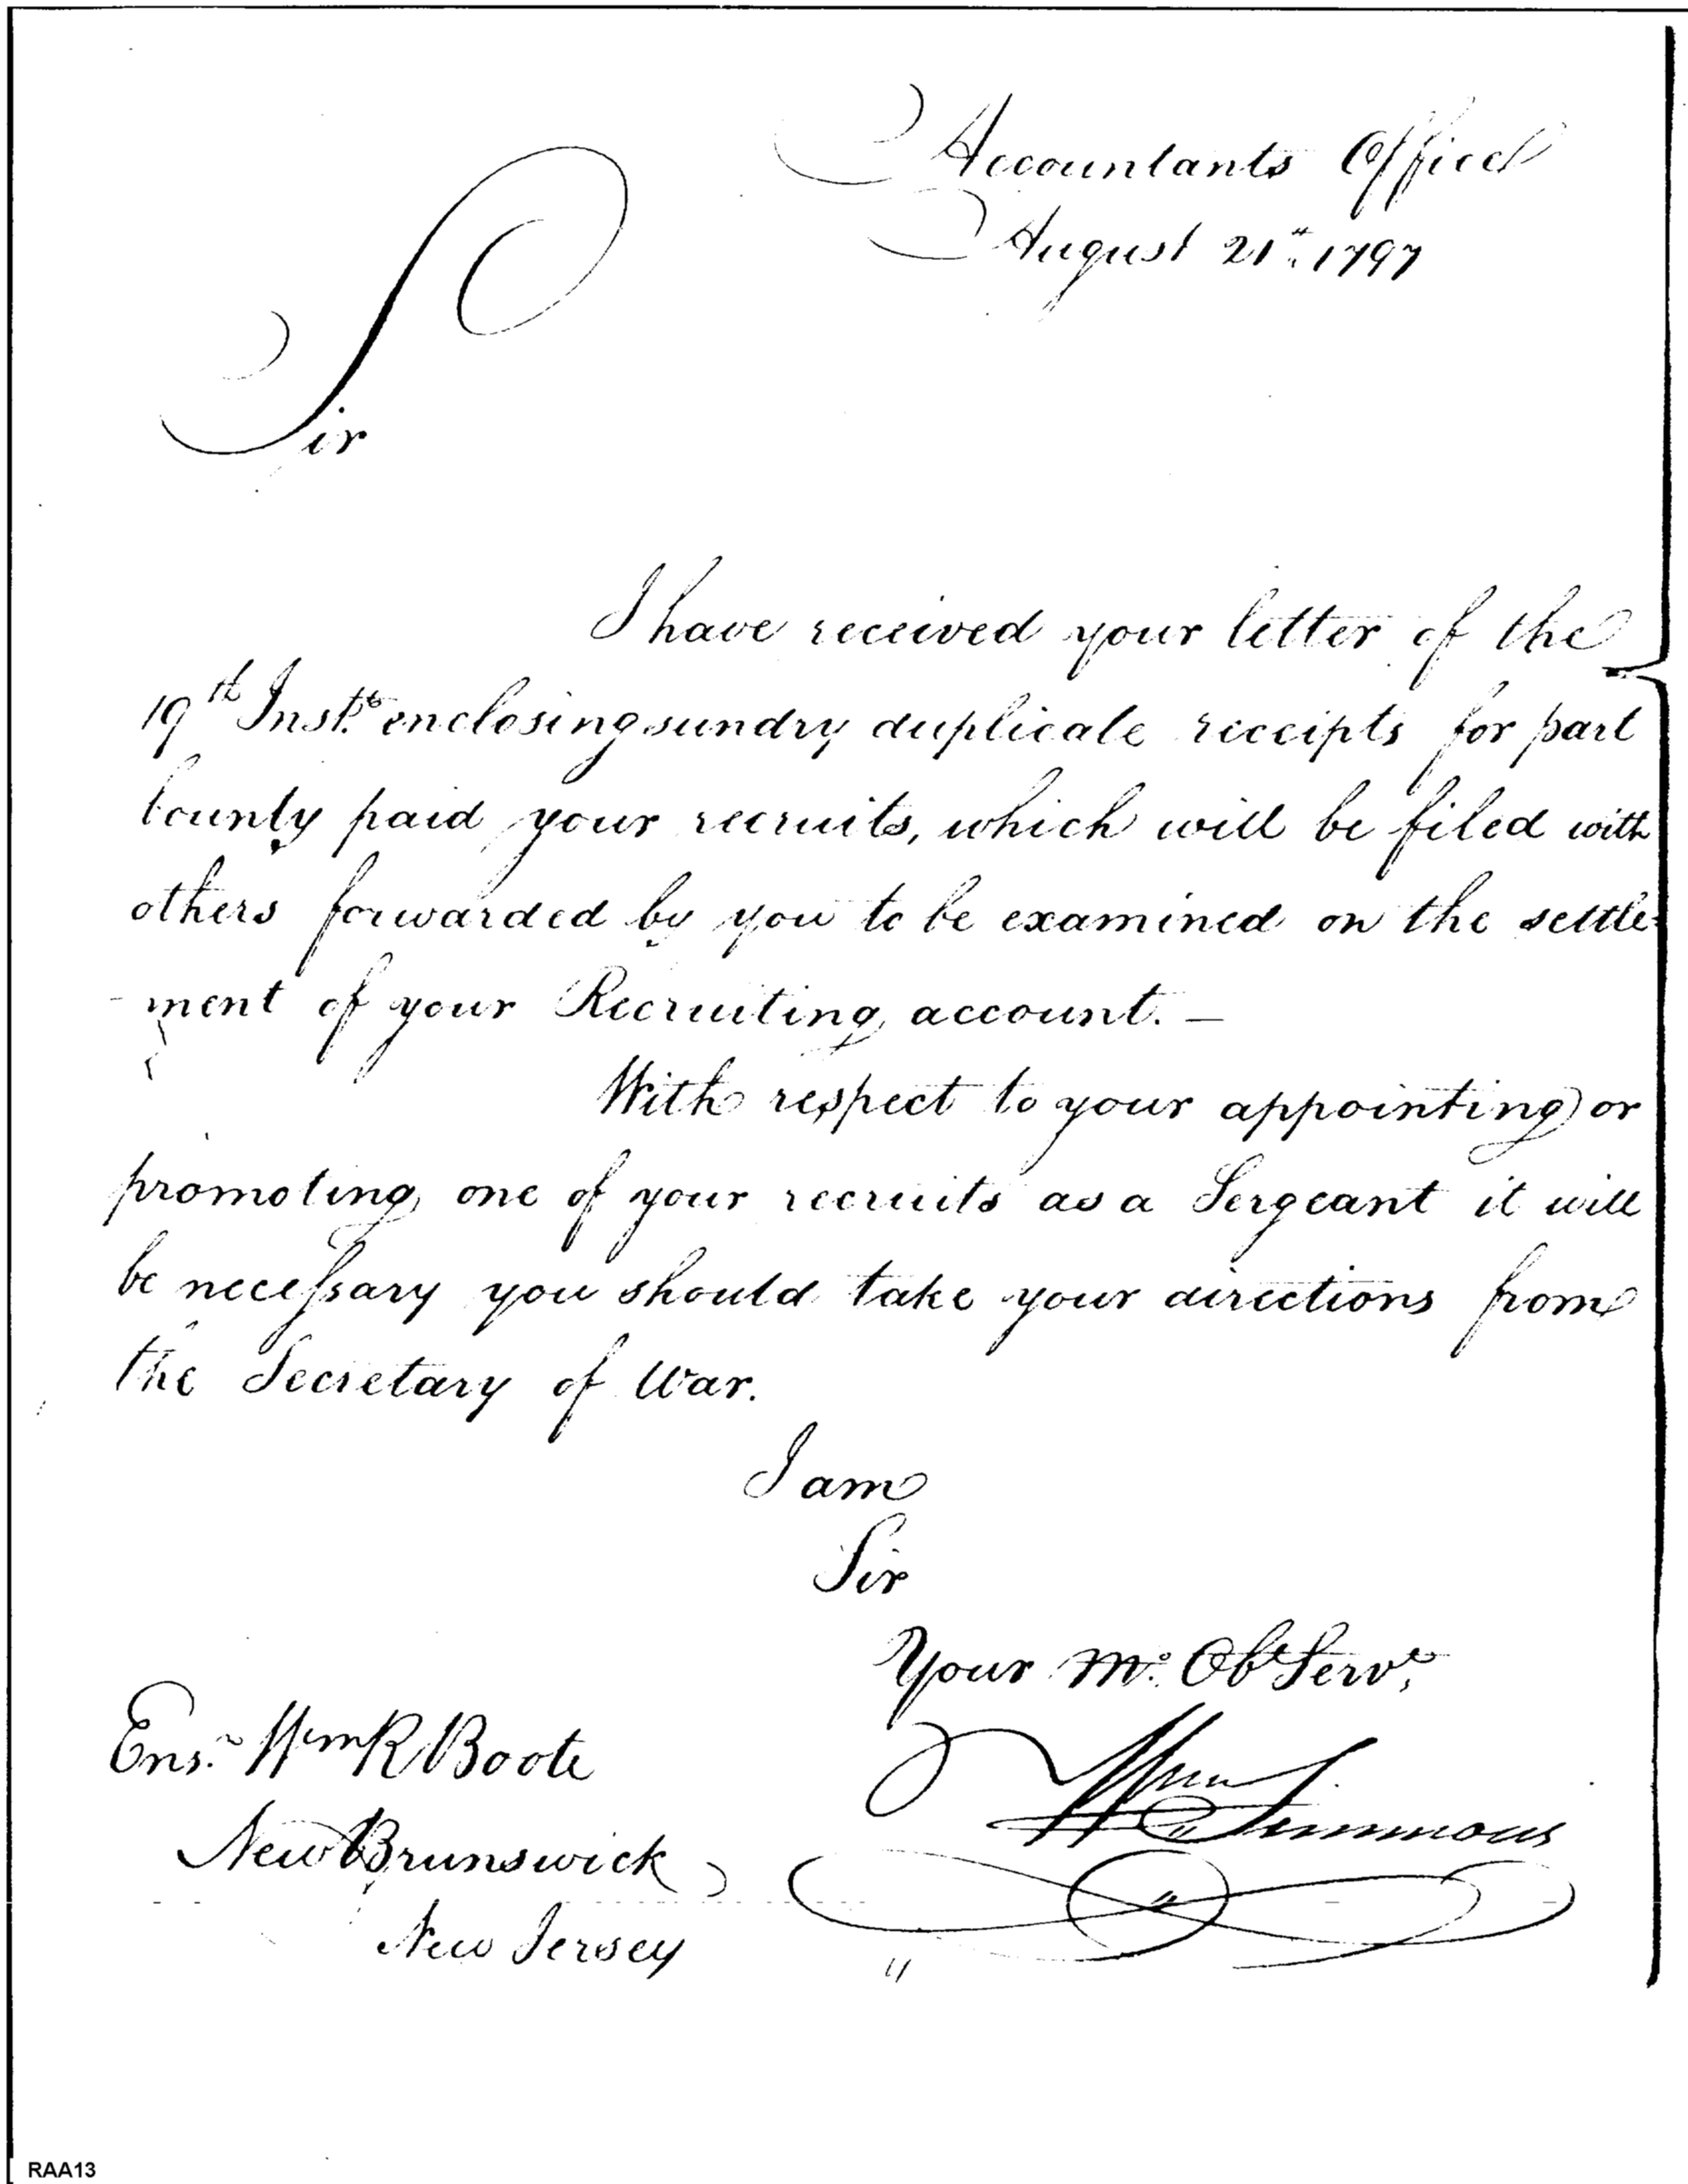 Accountants Office
August 21st 1797
Sir
I have received your letter of the
19th Instt. enclosing sundry duplicate receipts for part
bounty paid your recruits, which will be filed with
others forwarded by you to be examined on the settle-
-ment of your Recruiting account. —
With respect to your appointing or
promoting one of your recruits as a Sergeant it will
be necessary you should take your directions from
the Secretary of War.
I am
Sir
Your Mo. Obt Servt,
Ensn. Wm R Boote
Wm Simmons
New Brunswick
New Jersey
RAA13